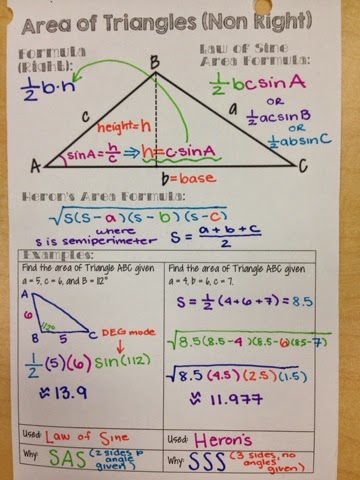 Area of Triangles (Non Right)
Formula (Right):
1/2 b·h
Law of Sine Area Formula:
1/2 bc sin A
OR
1/2 ac sin B
OR
1/2 ab sin C
B
c
a
height=h
A
sinA = h/c
h = c·sinA
C
b=base
Heron's Area Formula:
√s(s-a)(s-b)(s-c)
where
s is semiperimeter
S = a+b+c/2
Examples:
Find the area of Triangle ABC given
a = 5, c = 6, and B = 112°
A
6
B
112°
5
C
DEG mode
1/2 (5)(6) sin(112)
≈ 13.9
Used: Law of Sine
Why: SAS (2 sides & angle given)
Find the area of Triangle ABC given
a = 4, b = 6, c = 7.
S = 1/2 (4+6+7) = 8.5
√8.5(8.5-4)(8.5-6)(8.5-7)
√8.5(4.5)(2.5)(1.5)
≈ 11.977
Used: Heron's
Why: SSS (3 sides, no angles given)